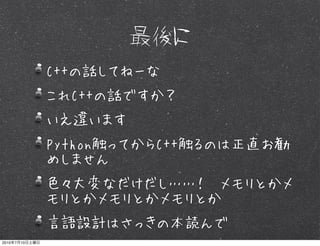 最後に
C++の話してねーな
これC++の話ですか？
いえ違います
Python触ってからC++触るのは正直お勧
めしません
色々大変なだけだし……！　メモリとかメ
モリとかメモリとかメモリとか
言語設計はさっきの本読んで
2012年7月13日土曜日